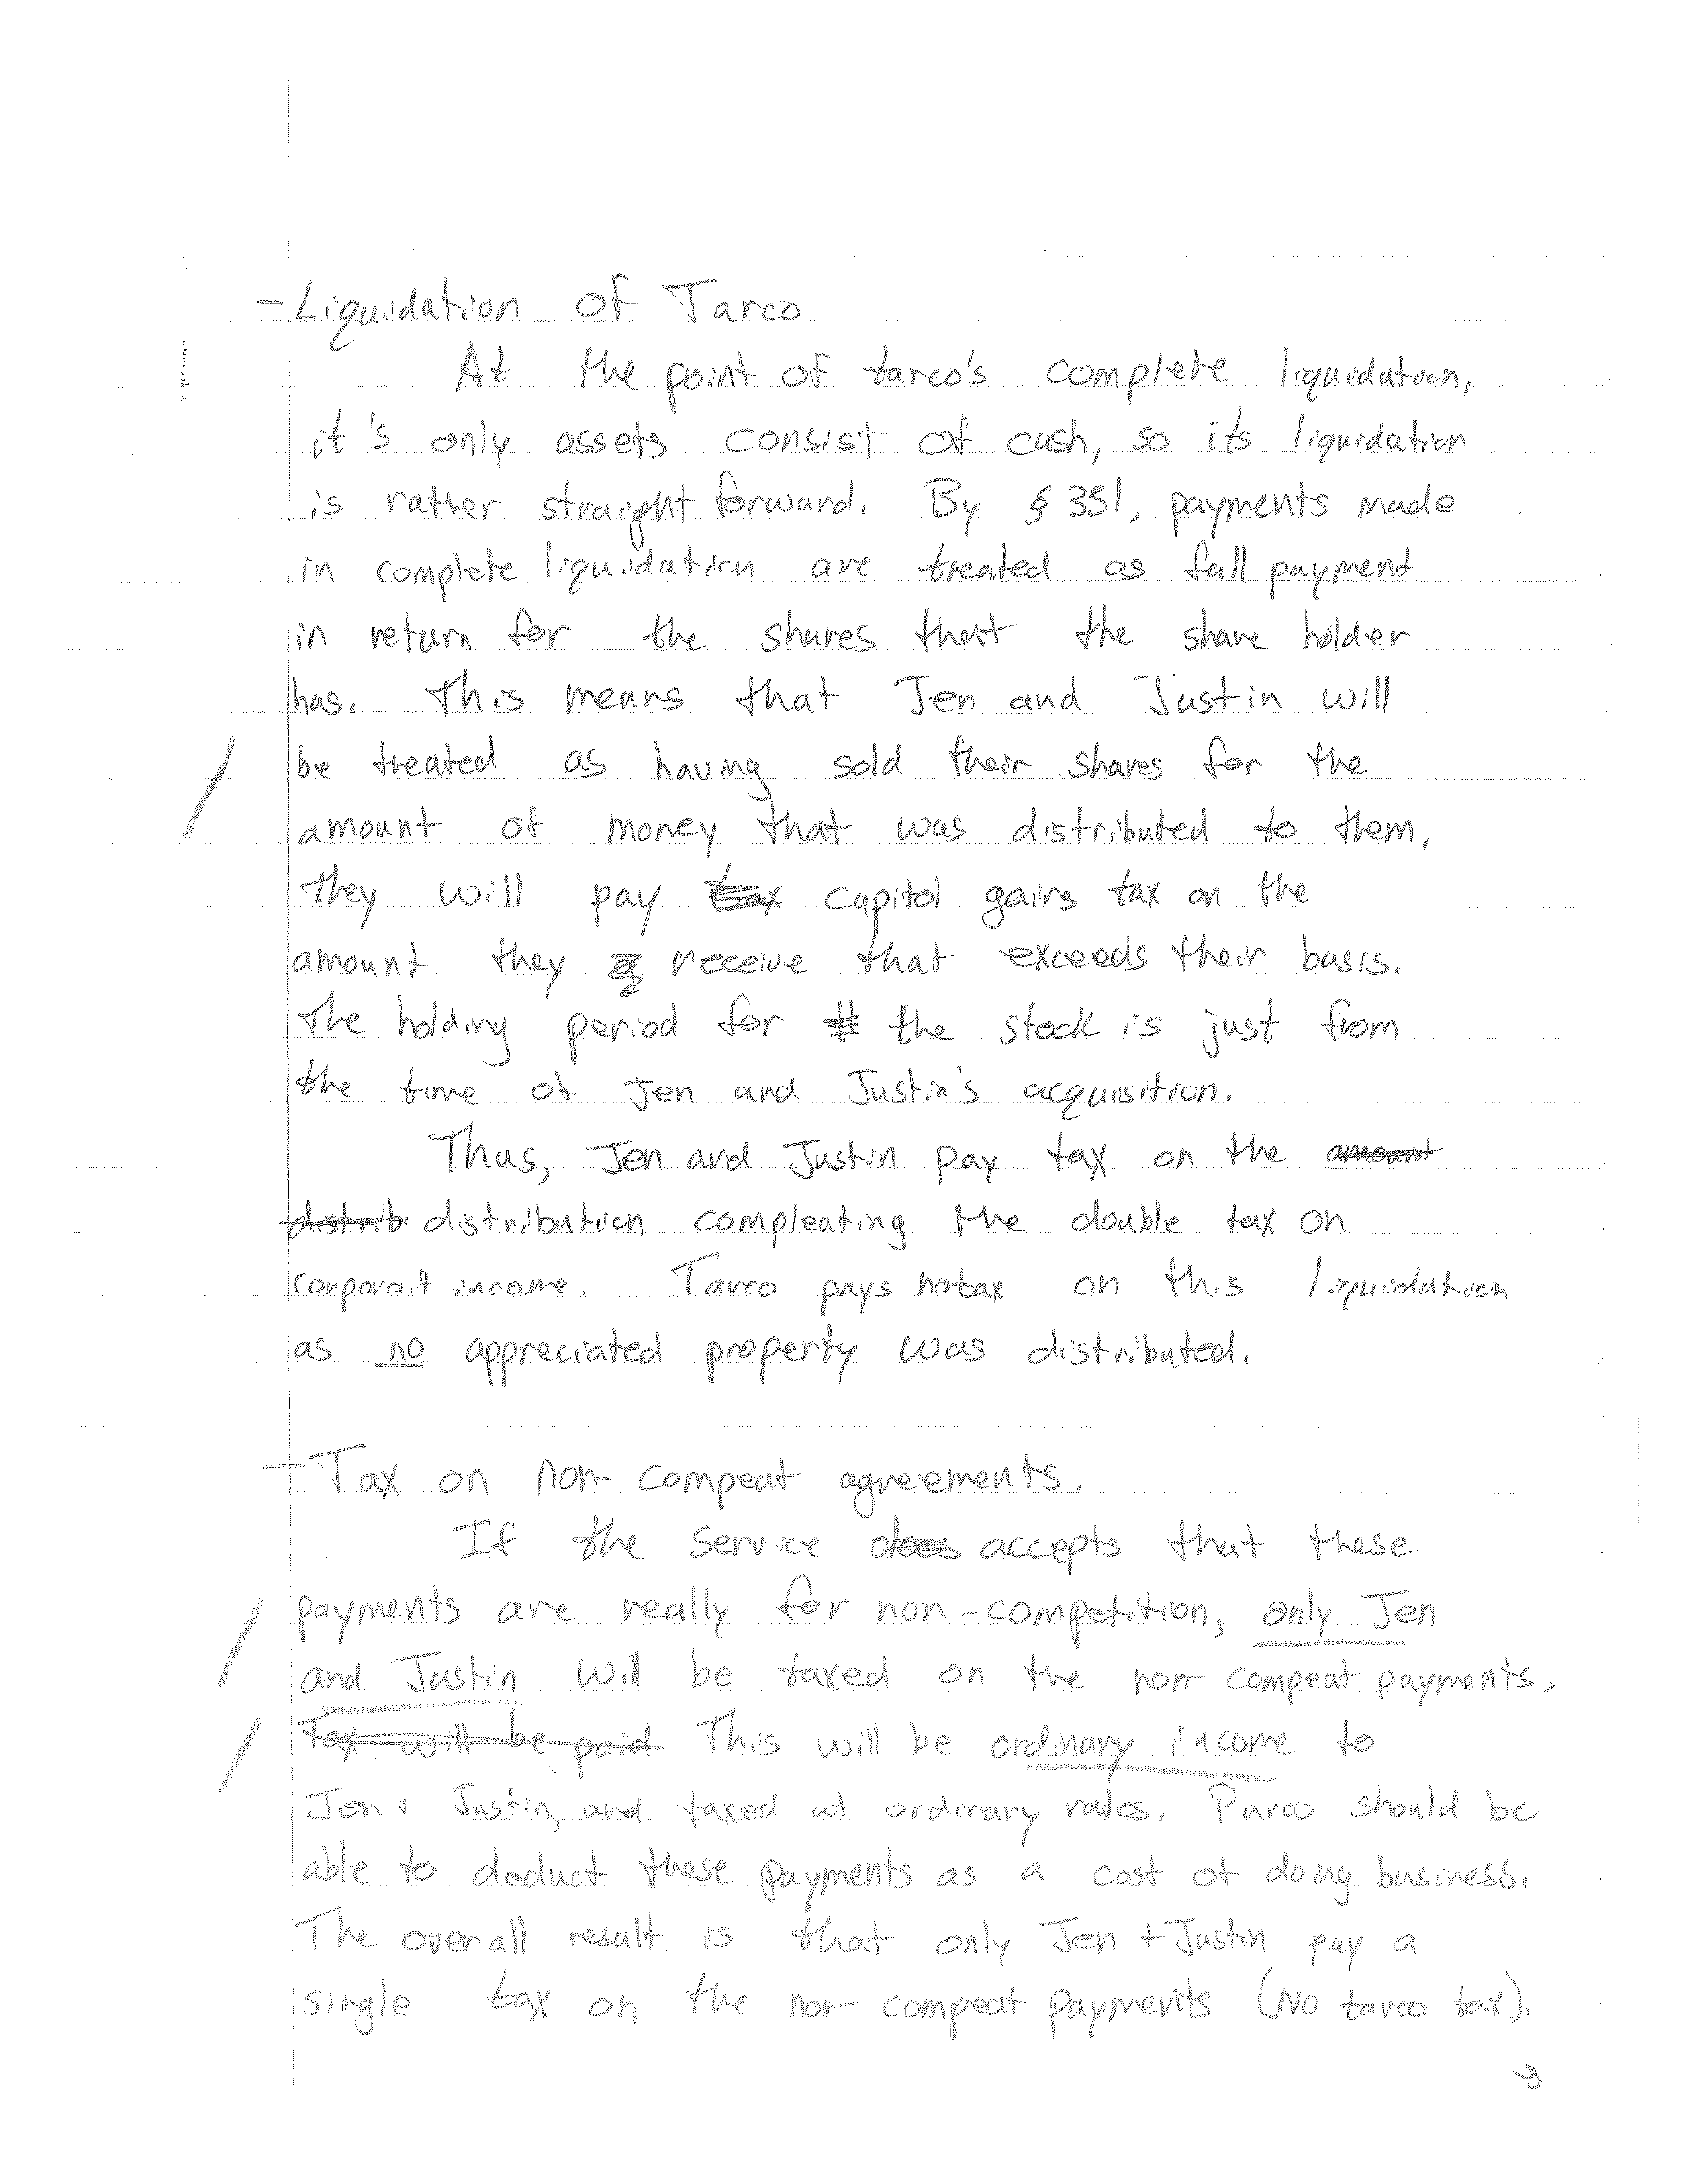 - Liquidation of Tarco
At the point of tarco's complete liquidation,
it's only assets consist of cash, so its liquidation
is rather straight forward. By § 331, payments made
in complete liquidation are treated as full payment
in return for the shares that the share holder
has. This means that Jen and Justin will
be treated as having sold their shares for the
amount of money that was distributed to them,
they will pay tax capitol gains tax on the
amount they receive that exceeds their basis.
The holding period for the stock is just from
the time of Jen and Justin's acquisition.
Thus, Jen and Justin pay tax on the amount
distrib distribution compleating the double tax on
corporait income. Tarco pays no tax on this liquidation
as no appreciated property was distributed.
- Tax on non-compeat agreements.
If the Service does accepts that these
payments are really for non-competition, only Jen
and Justin will be taxed on the non-compeat payments.
Tax will be paid This will be ordinary income to
Jen + Justin, and taxed at ordinary rates. Parco should be
able to deduct these payments as a cost of doing business.
The overall result is that only Jen + Justin pay a
single tax on the non-compeat payments (No tarco tax).